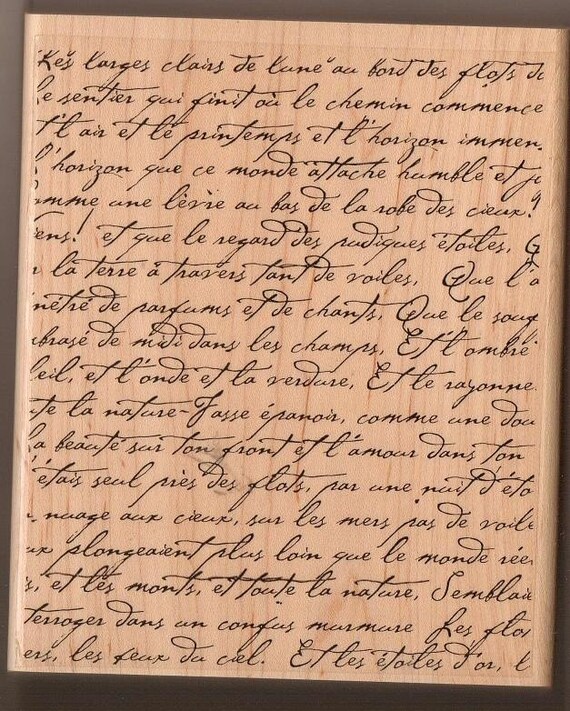 Les larges clairs de lune au bord des flots do
Le sentier qui finit où le chemin commence
t l'air et le printemps et l'horizon immen
L'horizon que ce monde attache humble et jo
omme une lèvre au bas de la robe des cieux!
iens! et que le regard des pudiques étoiles, Q
r la terre à travers tant de voiles, Que l'a
nétré de parfums et de chants, Que le souf
mbrasé de midi dans les champs, Et l'ombre
leil, et l'onde et la verdure, Et le rayonne
ute la nature-Fasse épanoir, comme une dou
La beauté sur ton front et l'amour dans ton
'étais seul près des flots, par une nuit d'éto
nuage aux cieux, sur les mers pas de voile
ux plongeaient plus loin que le monde rée
s, et les monts, et toute la nature, Semblaie
terroger dans un confus murmure Les flos
ers, les feux du ciel. Et les étoiles d'or, l